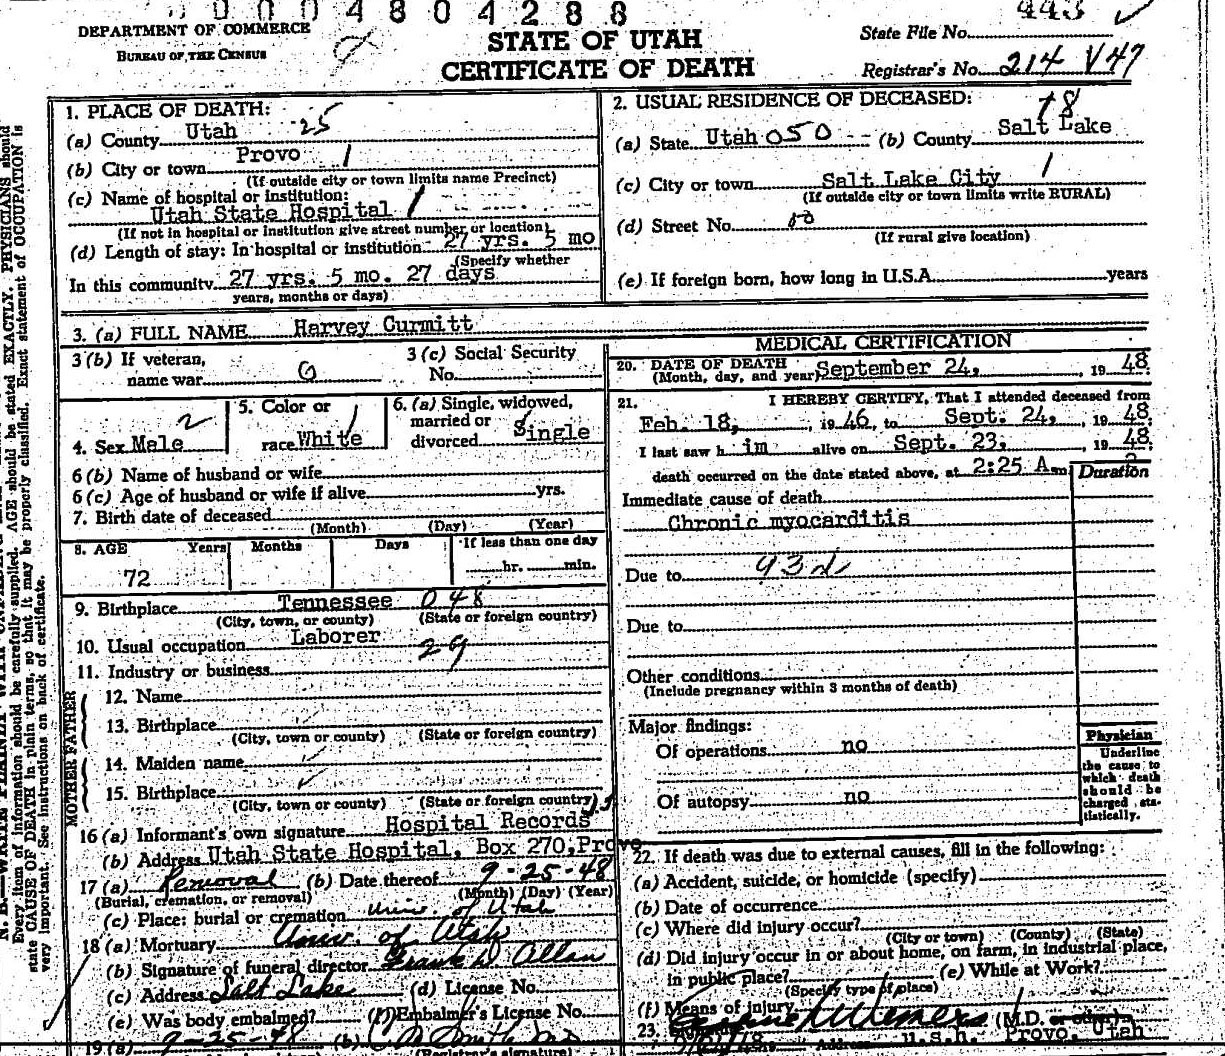 0004804288
DEPARTMENT OF COMMERCE
BUREAU OF THE CENSUS
STATE OF UTAH
CERTIFICATE OF DEATH
State File No. 443
Registrar's No. 214 V47
1. PLACE OF DEATH:
(a) County Utah 25
(b) City or town Provo 1
(If outside city or town limits name Precinct)
(c) Name of hospital or institution:
Utah State Hospital 1
(If not in hospital or institution give street number or location)
(d) Length of stay: In hospital or institution 27 yrs. 5 mo
(Specify whether
In this community 27 yrs. 5 mo. 27 days
years, months or days)
2. USUAL RESIDENCE OF DECEASED:
(a) State Utah 050 (b) County Salt Lake 18
(c) City or town Salt Lake City 1
(If outside city or town limits write RURAL)
(d) Street No. 10
(If rural give location)
(e) If foreign born, how long in U.S.A. years
3. (a) FULL NAME Harvey Curmitt
3 (b) If veteran,
name war 0
3 (c) Social Security
No.
4. Sex Male 2
5. Color or
race White 1
6. (a) Single, widowed,
married or
divorced Single
6 (b) Name of husband or wife
6 (c) Age of husband or wife if alive yrs.
7. Birth date of deceased
(Month) (Day) (Year)
8. AGE Years Months Days If less than one day
72 hr. min.
9. Birthplace Tennessee 048
(City, town, or county) (State or foreign country)
10. Usual occupation Laborer 29
11. Industry or business
FATHER
12. Name
13. Birthplace
(City, town or county) (State or foreign country)
MOTHER
14. Maiden name
15. Birthplace
(City, town or county) (State or foreign country)
16 (a) Informant's own signature Hospital Records
(b) Address Utah State Hospital, Box 270, Provo
17 (a) Removal (b) Date thereof 9-25-48
(Burial, cremation, or removal) (Month) (Day) (Year)
(c) Place: burial or cremation Univ. of Utah
18 (a) Mortuary Univ. of Utah
(b) Signature of funeral director Frank W. Allan
(c) Address Salt Lake (d) License No.
(e) Was body embalmed? (f) Embalmer's License No.
19 (a) 9-25-48 (b)
(Registrar's signature)
MEDICAL CERTIFICATION
20. DATE OF DEATH
(Month, day, and year) September 24, , 19 48.
21. I HEREBY CERTIFY, That I attended deceased from
Feb. 18, , 19 46, to Sept. 24, , 19 48.
I last saw h im alive on Sept. 23, , 19 48.
death occurred on the date stated above, at 2:25 A.m
Duration
Immediate cause of death
Chronic myocarditis
Due to 93d
Due to
Other conditions
(Include pregnancy within 3 months of death)
Major findings:
Of operations no
Of autopsy no
Physician
Underline
the cause to
which death
should be
charged sta-
tistically.
22. If death was due to external causes, fill in the following:
(a) Accident, suicide, or homicide (specify)
(b) Date of occurrence
(c) Where did injury occur?
(City or town) (County) (State)
(d) Did injury occur in or about home, on farm, in industrial place,
in public place? (e) While at Work?
(Specify type of place)
(f) Means of injury
23. (M.D. or other)
Address U.S.H. Provo, Utah
Every item of information should be carefully supplied. AGE should be stated EXACTLY. PHYSICIANS should
state CAUSE OF DEATH in plain terms, so that it may be properly classified. Exact statement of OCCUPATION is
very important. See instructions on back of certificate.